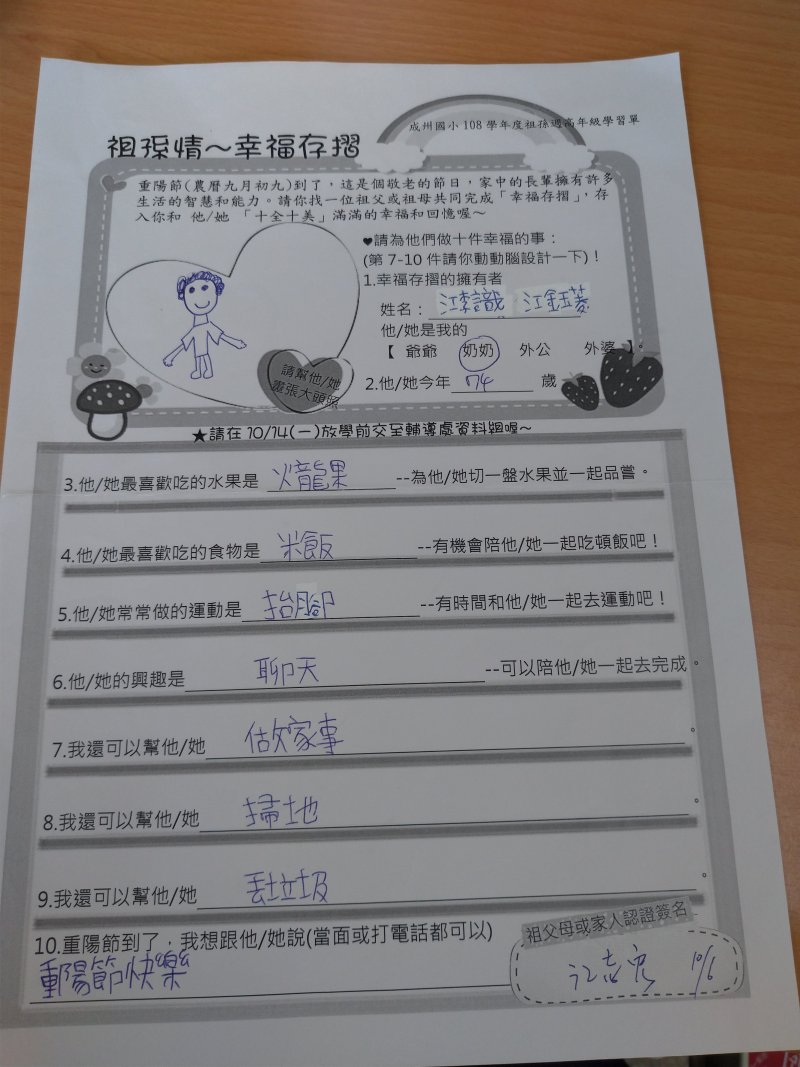 成州國小 108 學年度祖孫週高年級學習單
祖孫情～幸福存摺
重陽節(農曆九月初九)到了，這是個敬老的節日，家中的長輩擁有許多
生活的智慧和能力。請你找一位祖父或祖母共同完成「幸福存摺」，存
入你和 他/她 「十全十美」滿滿的幸福和回憶喔～
♥請為他們做十件幸福的事：
(第 7-10 件請你動動腦設計一下)！
1.幸福存摺的擁有者
姓名： 江李識 江鈺菱
他/她是我的
【 爺爺 奶奶 外公 外婆 】。
請幫他/她
畫張大頭照
2.他/她今年 74 歲
★請在 10/14(一)放學前交至輔導處資料組喔～
3.他/她最喜歡吃的水果是 火龍果 --為他/她切一盤水果並一起品嘗。
4.他/她最喜歡吃的食物是 米飯 --有機會陪他/她一起吃頓飯吧！
5.他/她常常做的運動是 抬腳 --有時間和他/她一起去運動吧！
6.他/她的興趣是 聊天 --可以陪他/她一起去完成。
7.我還可以幫他/她 做家事 。
8.我還可以幫他/她 掃地 。
9.我還可以幫他/她 丟垃圾 。
10.重陽節到了，我想跟他/她說(當面或打電話都可以)
重陽節快樂
祖父母或家人認證簽名
10/6